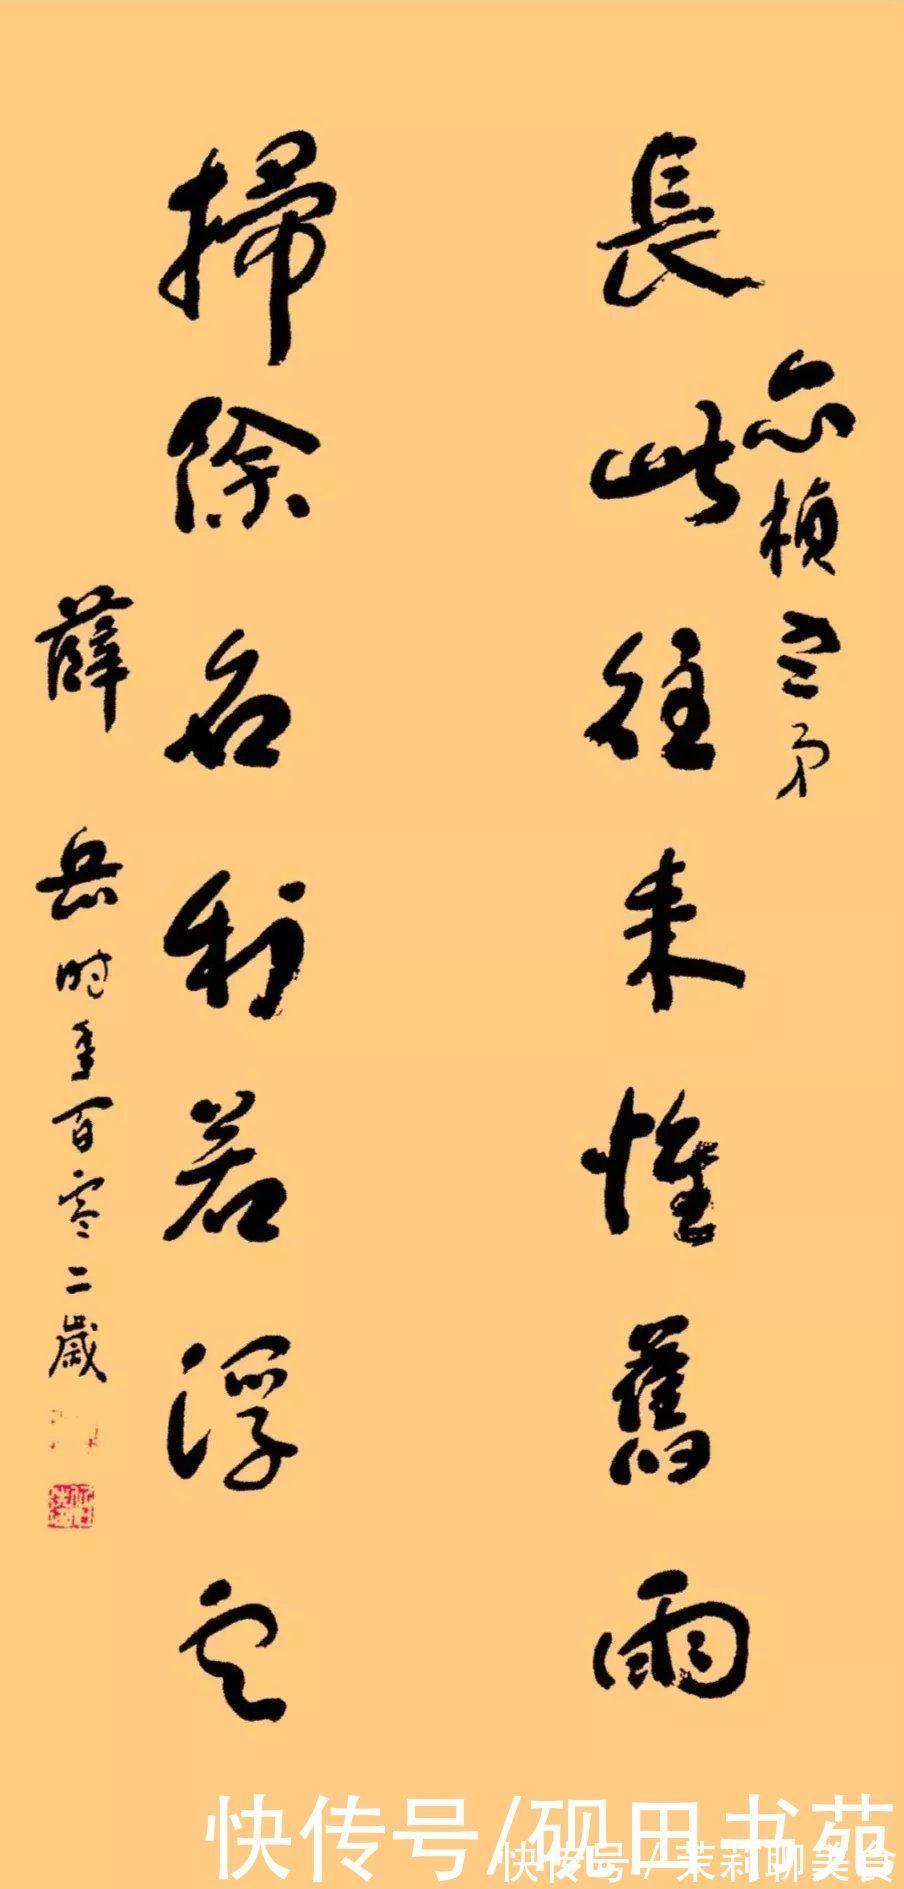 長此往來惟舊雨
亦楨吾弟
掃除名利若浮雲
薛岳時年百零二歲
快传号/砚田书苑
快传号/茉莉聊美食